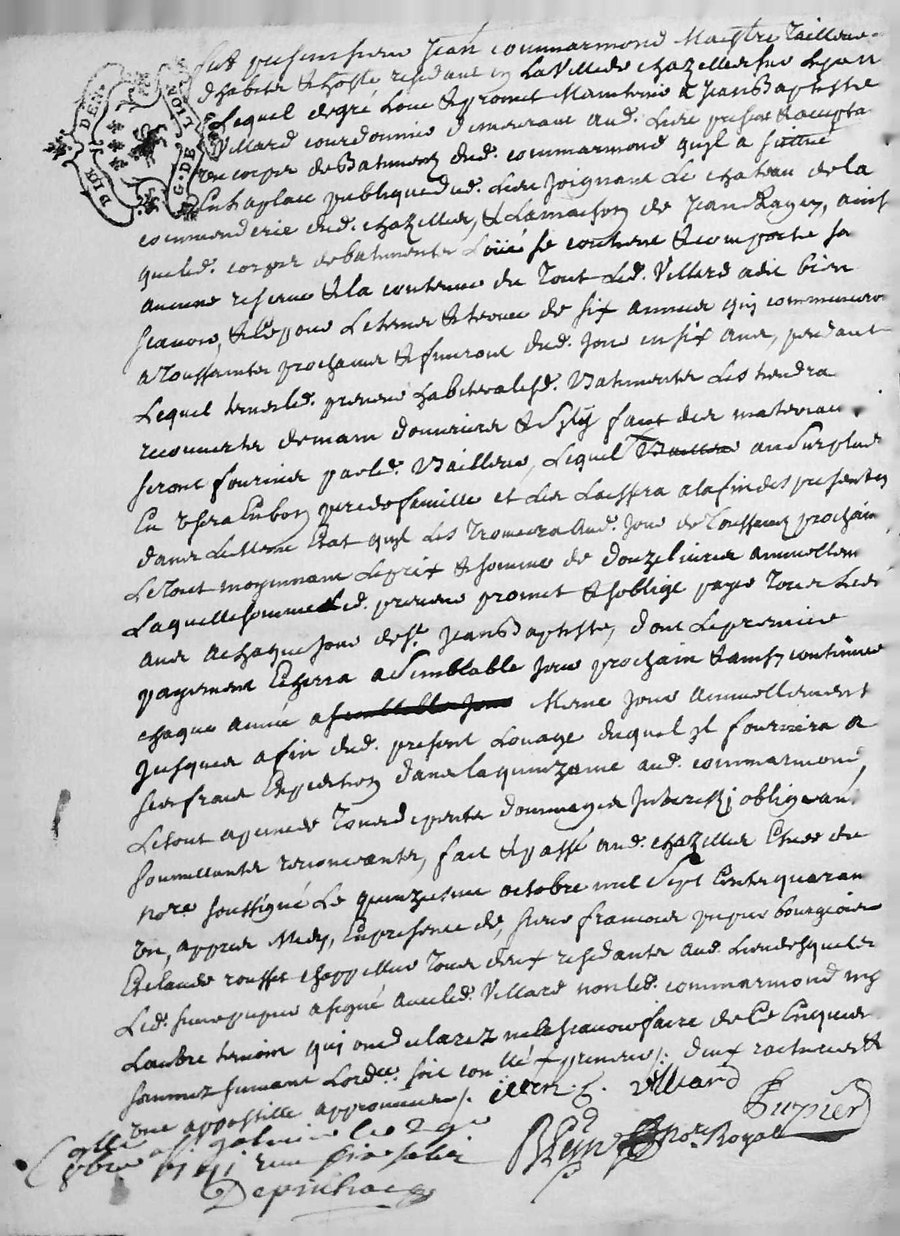 DIX DEN G. DE LION
fut present sieur Jean Commarmond Maistre Tailleur
d'habits & hoste residant en La Ville de chazelles sur Lyon
Lequel de gré Loue & promet Maintenir a Jean Baptiste
Villard courdonnier demeurant aud. Lieu present & accepta
un corps de Batiment dud. commarmond quil a situé
En La place publique dud. Lieu Joignant Le chateau de la
commanderie dud. chazelles, & La maison de Jean Ragey, ainsi
que led. corps de batiments Loüé se contient & comporte sa
aucune reserve & la contenue du Tout Led. Villard a dit bien
scavoir, & ce pour Le terme & terme de six années qui commencero
a Toussaints prochaine & finiront dud. Jour en six ans, pendant
Lequel terme led. preneur habitera lesd. Batiments Les tiendra
recouverts de main d'ouvrier & Sylÿ faut des materiau
seront fournies par led. Bailleur, Lequel au Surplus
En usera En bon pere de famille et Les Laissera a la fin des presentes
dans Le Meme Etat quil Les Trouvera Aud. Jour de Toussaint prochain
Le Tout moyennant Le prix & somme de douze livres annuellem
Laquelle somme Led. preneur promet & soblige payer Tous Lesd
ans a chaque Jour de St. Jean Baptiste, dont Le premier
payement Echerra a Semblable Jour prochain & ainsy continuer
chaque année a semblable Jour Meme Jour Annuellement
Jusques a fin dud. present Louage duquel Il fournira a
ses frais Expedition dans la quinzaine aud. commarmond,
Le tout a peine de Tous depents dommages Interests obligean
soumettants renonceants, fait & passé aud. chazelles Etude du
nore. soussigné Le quinzieme octobre mil Sept Cents quaran
un, appres Midy, En presence de, sieur francois pupier bourgeois
Et claude rousset chappellier Tous deux residants aud. Lieu desquels
Led. sieur pupier a signé avec led. Villard non led. commarmond ny
L'autre temoin qui ont declarez ne le scavoir faire de Ce Enquis
sommez suivant Lordce. soit con preneur deux ratures &
une appostille approuvées villard
Pupier
nore. Royal